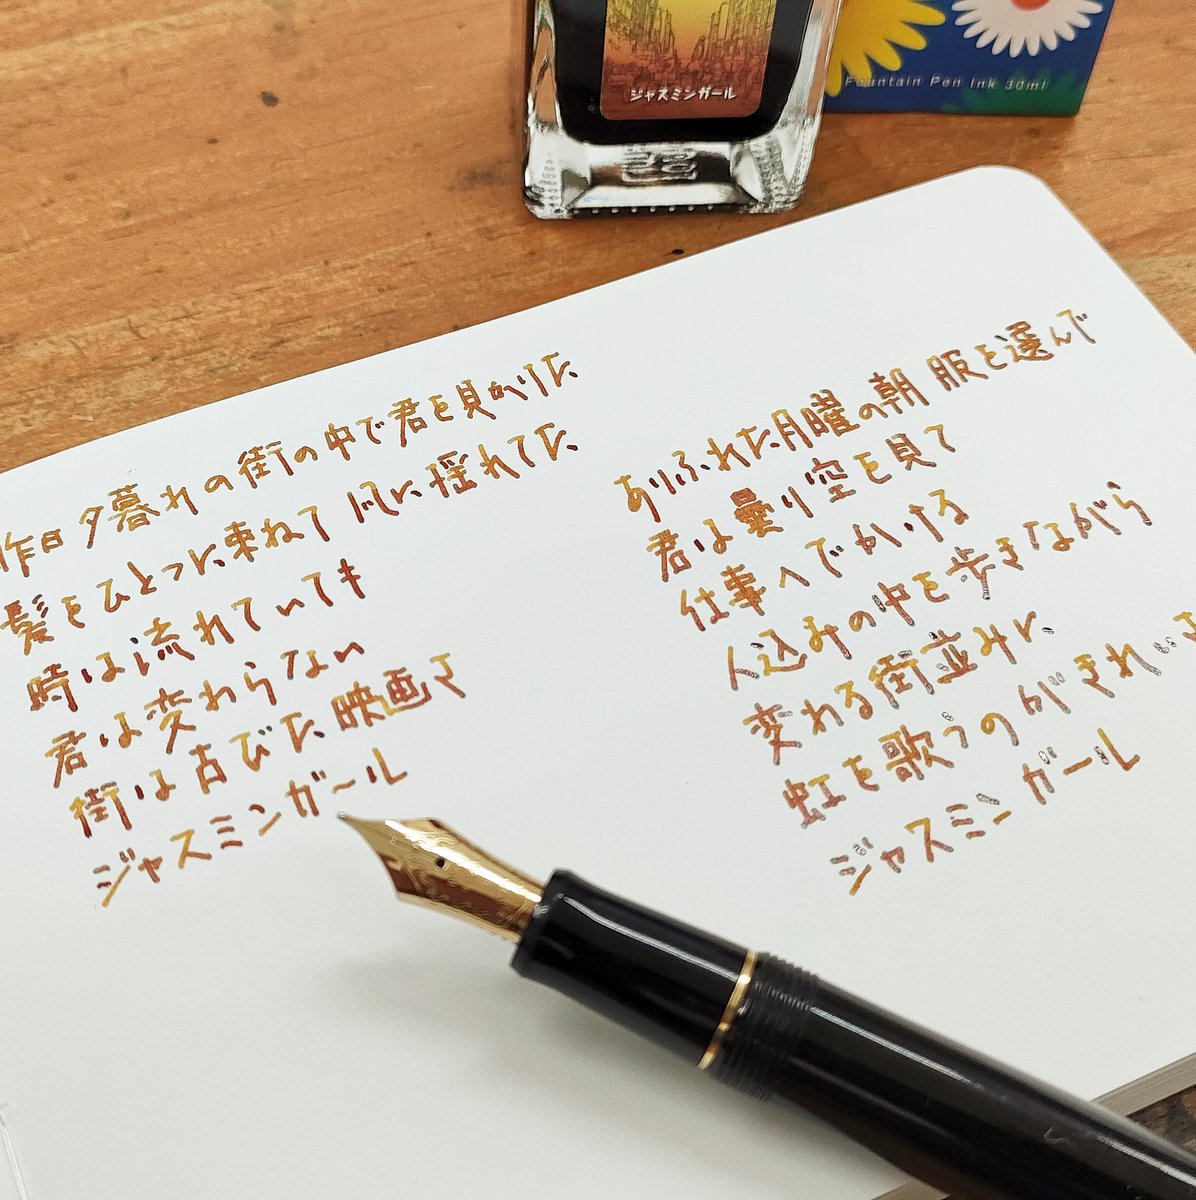 ジャスミンガール
Fountain Pen Ink 30ml
昨日夕暮れの街の中で君を見かけた
髪をひとつに束ねて 風に揺れてた
時は流れていても
君は変わらない
街は古びた映画さ
ジャスミンガール
ありふれた月曜の朝 服を選んで
君は曇り空を見て
仕事へでかける
人込みの中を歩きながら
変わる街並みに
虹を歌うのがきれいさ
ジャスミンガール